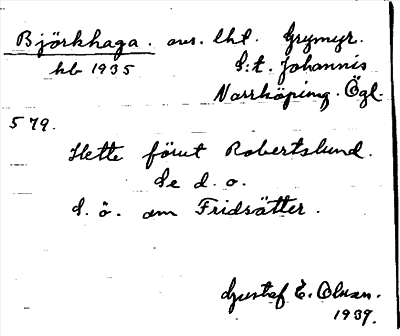 Björkhaga. avs. lht. Grymyr.
hb 1935 S:t. Johannis
Norrköping. Ögl.
579.
Hette förut Robertslund.
Se d. o.
S. ö. om Fridsätter.
Gustaf E. Olsson.
1939.